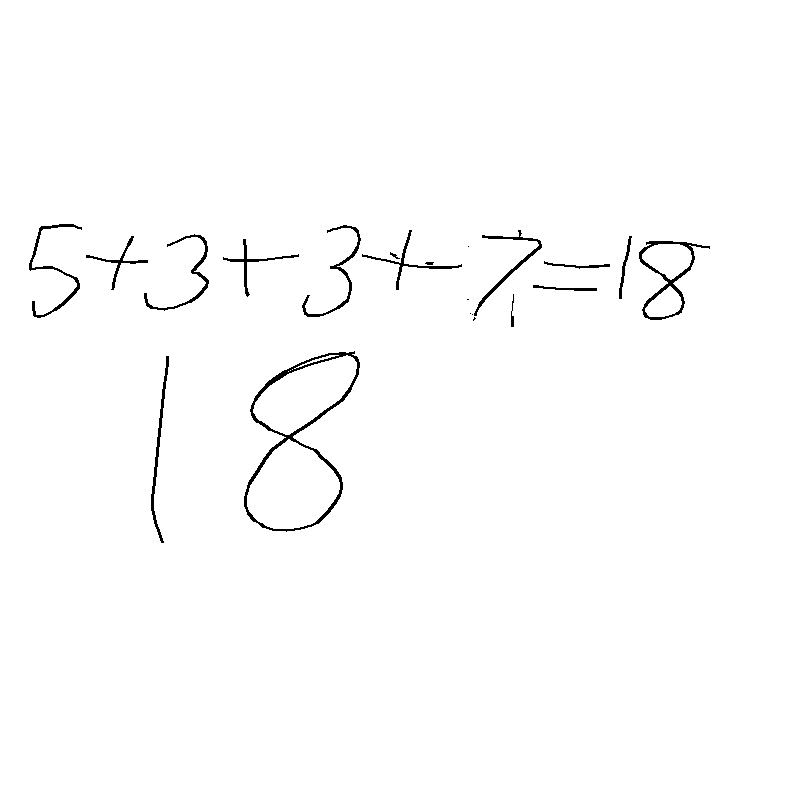 5+3+3+7=18
18